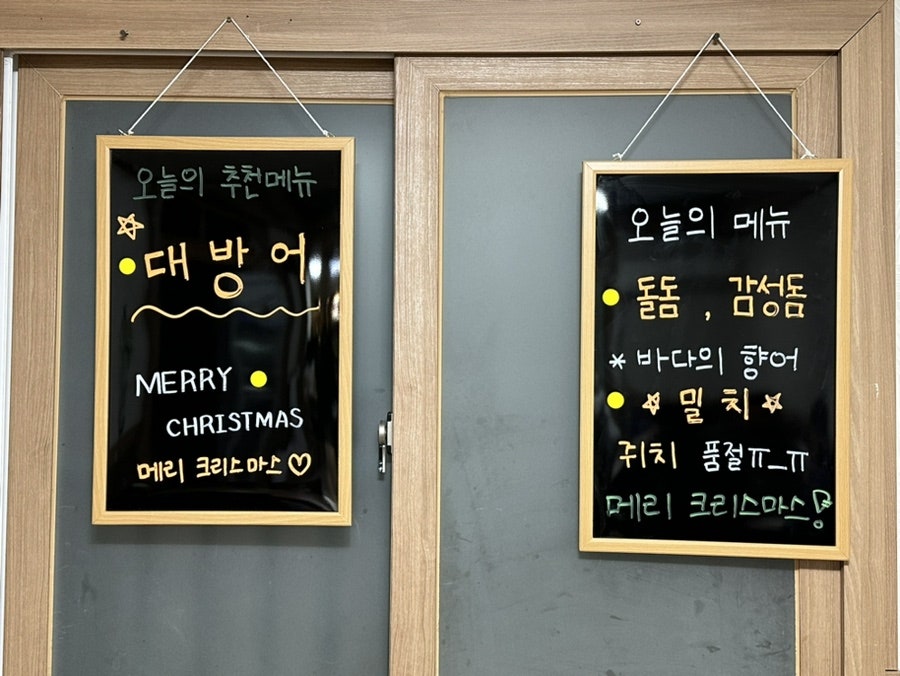 오늘의 추천메뉴
대방어
MERRY
CHRISTMAS
메리 크리스마스♡
오늘의 메뉴
돌돔, 감성돔
* 바다의 향어
☆ 밀치 ☆
쥐치 품절ㅠ_ㅠ
메리 크리스마스!